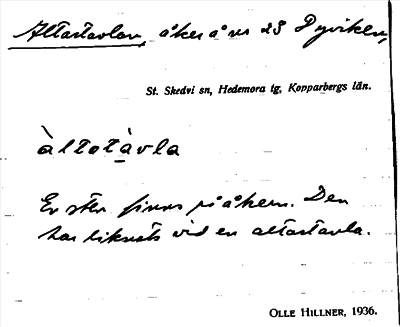 Altartavlan, åker å nr 23 Dyviken,
St. Skedvi sn, Hedemora tg, Kopparbergs län.
àltatàvla
En sten finns på åkern. Den
har liknats vid en altartavla.
OLLE HILLNER, 1936.